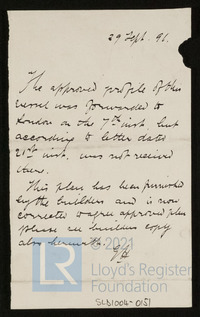 29 Sept. 91.
The approved profile of this
vessel was forwarded to
London on the 7th inst. but
according to letter dated
21st inst. was not received
there.
This plan has been furnished
by the builders and is now
corrected to agree approved plan
please see builders copy
also herewith.
© 2021
Lloyd's Register
Foundation
SLD1004-0151